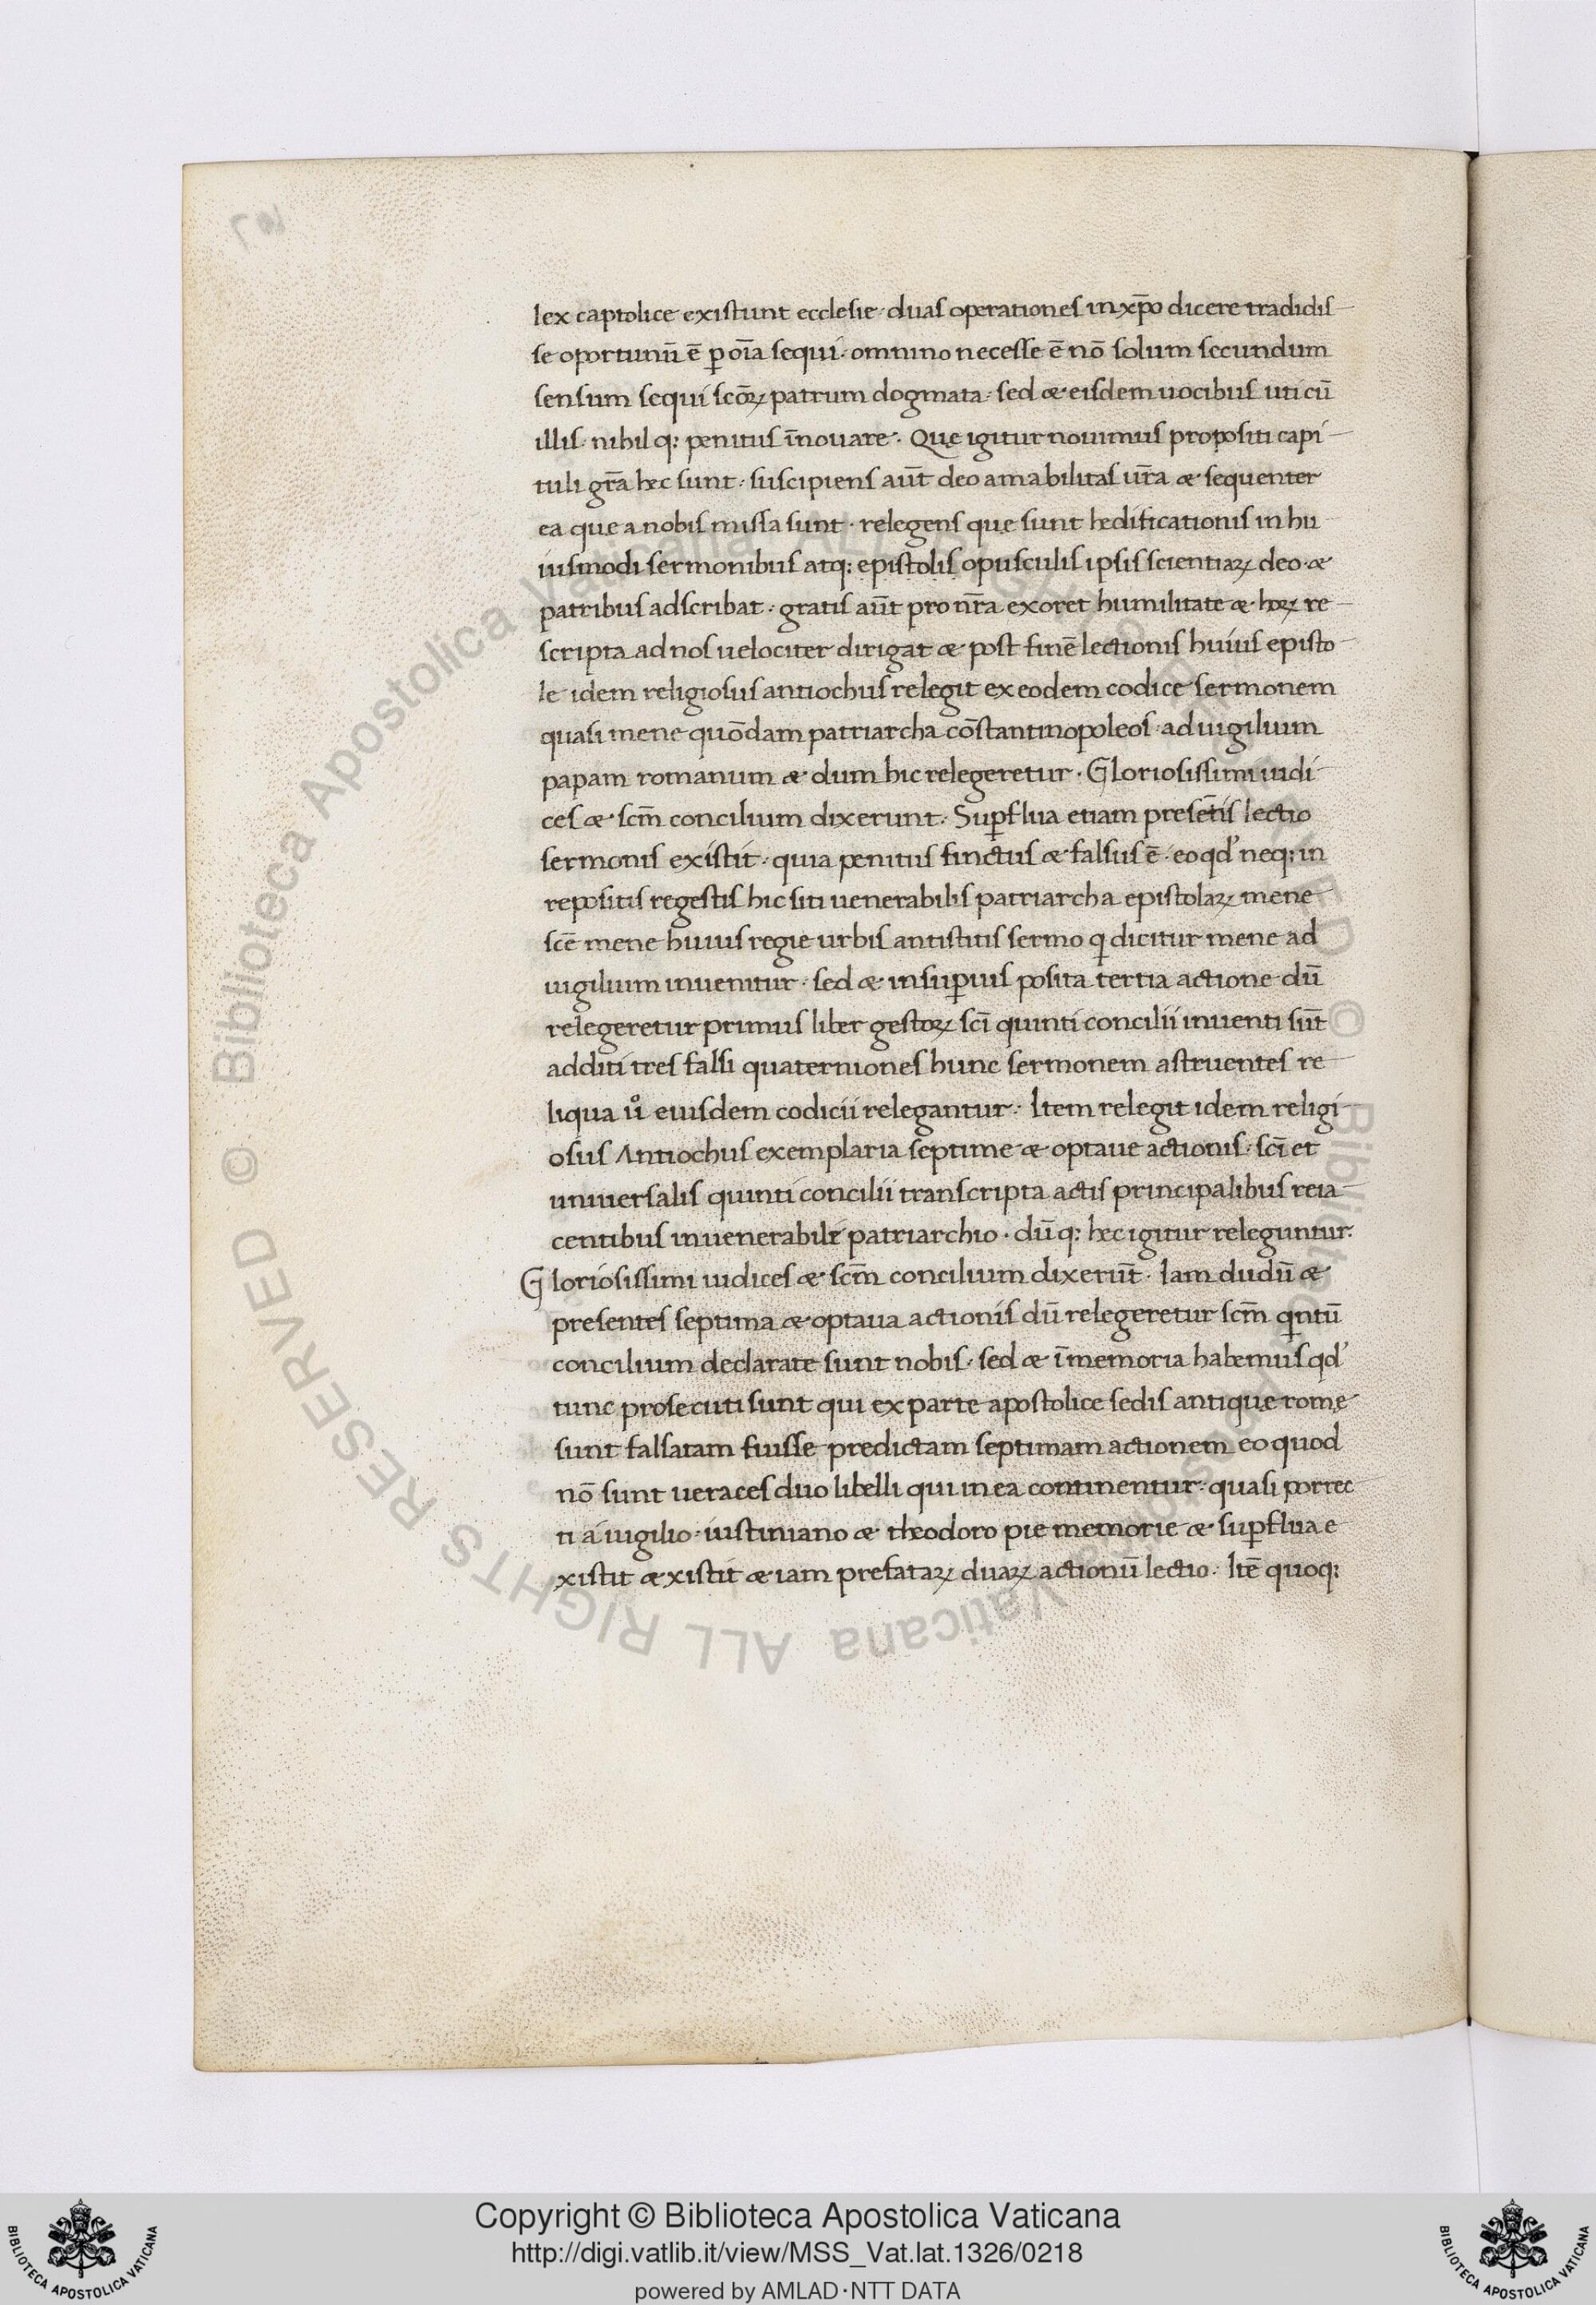 lex captolice existunt ecclesie · duas operationes in xp̄o dicere tradidis
se oportunū ē ꝑ oīa sequi · omnino necesse ē nō solum secundum
sensum sequi scōꝝ patrum dogmata · sed æ eisdem uocibus uti cū
illis · nihil q: penitus īnouare · Quę igitur nouimus propositi capi
tuli gr̄a hec sunt · suscipiens aūt deo amabilitas ur̄a æ sequenter
ea quę a nobis missa sunt · relegens quę sunt hedificationis in hu
iusmodi sermonibus atq: epistolis opusculis ipsis scientiaꝝ deo · æ
patribus adscribat · gratis aūt pro nr̄a exoret humilitate æ hoꝝ re
scripta ad nos uelociter dirigat æ post finē lectionis huius episto
le idem religiosus antiochus relegit ex eodem codice sermonem
quasi mene quōdam patriarcha cōstantinopoleos · ad uigilium
papam romanum æ dum hic relegeretur · Gloriosissimi iudi
ces æ scm̄ concilium dixerunt · Suꝑflua etiam presētis lectio
sermonis existit · quia penitus finctus æ falsus ē · eo qd' neq: in
repositis regestis hic siti uenerabilis patriarcha epistolaꝝ mene
scē mene huius regie urbis antistitis sermo q dicitur mene ad
uigilium inuenitur · sed æ insuꝑius posita tertia actione dū
relegeretur primus liber gestoꝝ scī quinti concilii inuenti sūt
additi tres falsi quaterniones hunc sermonem astruentes re
liqua ů eiusdem codicii relegantur · Item relegit idem religi
osus Antiochus exemplaria septime æ optaue actionis · scī et
uniuersalis quinti concilii transcripta actis principalibus reia
centibus in uenerabili patriarchio · dūq: hec igitur releguntur ·
Gloriosissimi iudices æ scm̄ concilium dixerūt · Iam dudū æ
presentes septima æ optaua actionis dū relegeretur scm̄ qntū
concilium declarate sunt nobis · sed æ ī memoria habemus qd'
tunc prosecuti sunt qui ex parte apostolice sedis antiquę romę
sunt falsatam fuisse predictam septimam actionem eo quod
nō sunt ueraces duo libelli qui in ea continentur · quasi porrec
ti a uigilio · iustiniano æ theodoro pie memorie æ suꝑflua e
xistit æ xistit æ iam prefataꝝ duaꝝ actionū lectio · Itē quoq:
Copyright © Biblioteca Apostolica Vaticana
http://digi.vatlib.it/view/MSS_Vat.lat.1326/0218
powered by AMLAD·NTT DATA
BIBLIOTECA APOSTOLICA VATICANA
BIBLIOTECA APOSTOLICA VATICANA
© Biblioteca Apostolica Vaticana ALL RIGHTS RESERVED © Biblioteca Apostolica Vaticana ALL RIGHTS RESERVED